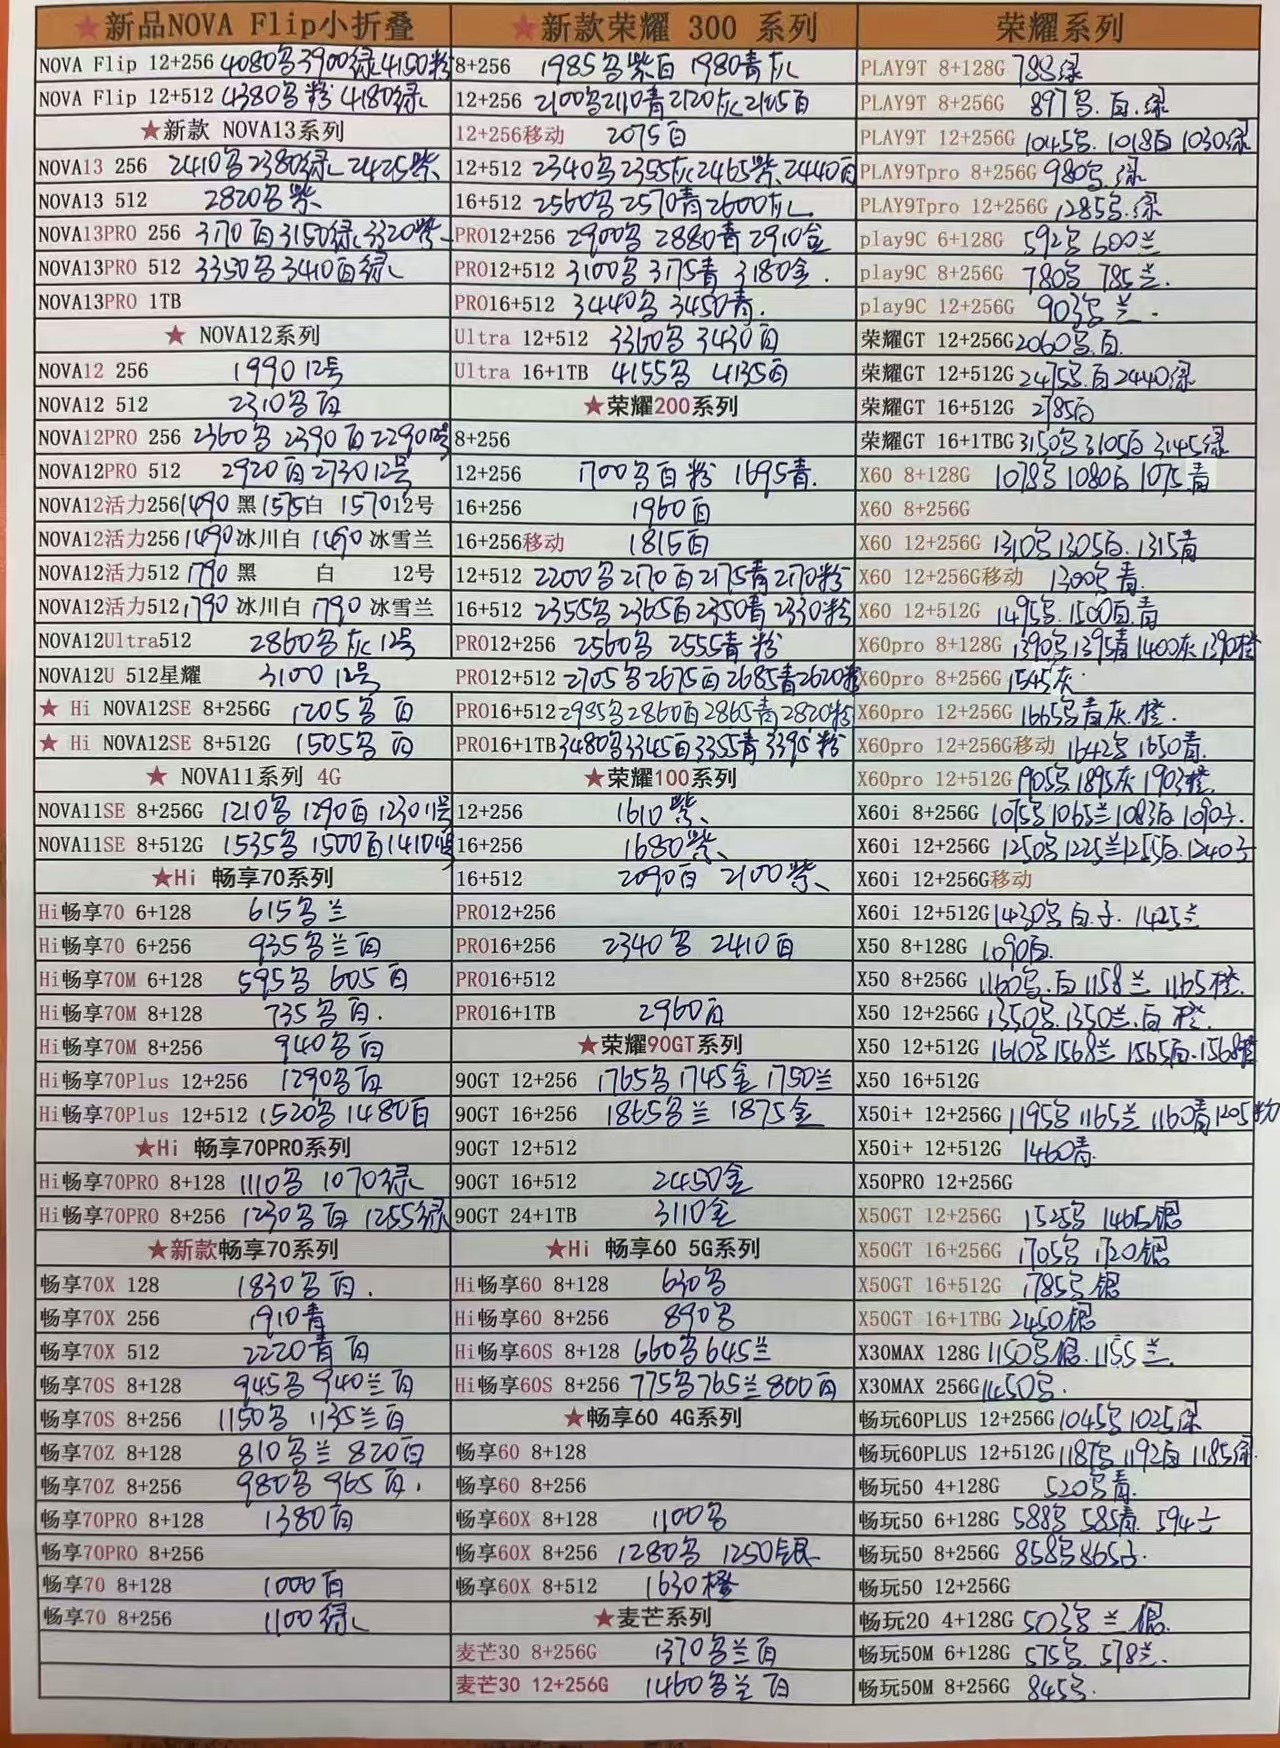 ★新品NOVA Flip小折叠
NOVA Flip 12+256 4080乌3900绿4150粉
NOVA Flip 12+512 4380乌粉 4180绿
★新款 NOVA13系列
NOVA13 256 2410乌2380绿 2425紫
NOVA13 512 2820乌紫
NOVA13PRO 256 3170白3150绿3320紫
NOVA13PRO 512 3350乌3410白绿
NOVA13PRO 1TB
★ NOVA12系列
NOVA12 256 1990 12号
NOVA12 512 2310乌白
NOVA12PRO 256 2360乌 2390白2290 12号
NOVA12PRO 512 2920白2730 12号
NOVA12活力256 1490 黑 1575白 1570 12号
NOVA12活力256 1490冰川白 1490 冰雪兰
NOVA12活力512 1790 黑 白 12号
NOVA12活力512 1790 冰川白 1790 冰雪兰
NOVA12Ultra512 2860乌灰12号
NOVA12U 512星耀 3100 12号
★ Hi NOVA12SE 8+256G 1205乌白
★ Hi NOVA12SE 8+512G 1505乌白
★ NOVA11系列 4G
NOVA11SE 8+256G 1210乌 1290白 1230 11号
NOVA11SE 8+512G 1535乌 1500白1410 11号
★Hi 畅享70系列
Hi畅享70 6+128 615乌兰
Hi畅享70 6+256 935乌兰白
Hi畅享70M 6+128 595乌 605白
Hi畅享70M 8+128 735乌白.
Hi畅享70M 8+256 940乌白
Hi畅享70Plus 12+256 1290乌白
Hi畅享70Plus 12+512 1520乌1480白
★Hi 畅享70PRO系列
Hi畅享70PRO 8+128 1110乌 1070绿
Hi畅享70PRO 8+256 1230乌白 1255绿
★新款畅享70系列
畅享70X 128 1830乌白.
畅享70X 256 1910青
畅享70X 512 2220青白
畅享70S 8+128 945乌940兰白
畅享70S 8+256 1150乌 1135兰白
畅享70Z 8+128 810乌兰 820白
畅享70Z 8+256 980乌965白.
畅享70PRO 8+128 1380白
畅享70PRO 8+256
畅享70 8+128 1000白
畅享70 8+256 1100绿
★新款荣耀 300 系列
8+256 1985乌紫白 1980青灰
12+256 2100乌2110青2120灰2125白
12+256移动 2075白
12+512 2340乌2355灰2465紫2440白
16+512 2560乌2570青2600灰
PRO12+256 2900乌 2880青2910金
PRO12+512 3100乌 3175青 3180金.
PRO16+512 3440乌 3450青.
Ultra 12+512 3360乌 3430白
Ultra 16+1TB 4155乌 4135白
★荣耀200系列
8+256
12+256 1700乌白粉 1695青.
16+256 1960白
16+256移动 1815白
12+512 2200乌2170白2175青2170粉
16+512 2355乌2365白2350青2330粉
PRO12+256 2560乌 2555青粉
PRO12+512 2705乌2675白2685青2620粉
PRO16+512 2985乌2860白2865青2820粉
PRO16+1TB 3480乌3345白3355青3395粉
★荣耀100系列
12+256 1610紫
16+256 1680紫
16+512 2090白 2100紫
PRO12+256
PRO16+256 2340乌 2410白
PRO16+512
PRO16+1TB 2960白
★荣耀90GT系列
90GT 12+256 1765乌1745金1750兰
90GT 16+256 1865乌兰 1875金
90GT 12+512
90GT 16+512 2450金
90GT 24+1TB 3110金
★Hi 畅享60 5G系列
Hi畅享60 8+128 630乌
Hi畅享60 8+256 890乌
Hi畅享60S 8+128 660乌645兰
Hi畅享60S 8+256 775乌765兰800白
★畅享60 4G系列
畅享60 8+128
畅享60 8+256
畅享60X 8+128 1100乌
畅享60X 8+256 1280乌 1250银
畅享60X 8+512 1630橙
★麦芒系列
麦芒30 8+256G 1370乌兰白
麦芒30 12+256G 1460乌兰白
荣耀系列
PLAY9T 8+128G 788绿
PLAY9T 8+256G 897乌.白.绿
PLAY9T 12+256G 1045乌.1018白 1030绿
PLAY9Tpro 8+256G 980乌.绿
PLAY9Tpro 12+256G 1285乌.绿
play9C 6+128G 592乌 600兰
play9C 8+256G 780乌 785兰.
play9C 12+256G 903乌 兰.
荣耀GT 12+256G 2060乌.白.
荣耀GT 12+512G 2475乌.白2440绿
荣耀GT 16+512G 2785白
荣耀GT 16+1TBG 3150乌3105白 3145绿
X60 8+128G 1078乌1080白1075青
X60 8+256G
X60 12+256G 1310乌1305白.1315青
X60 12+256G移动 1300乌青.
X60 12+512G 1495乌.1500白.青
X60pro 8+128G 1390乌1395青1400灰1390橙
X60pro 8+256G 1545灰
X60pro 12+256G 1665乌青灰.橙.
X60pro 12+256G移动 1642乌1650青.
X60pro 12+512G 1905乌1895灰 1903橙.
X60i 8+256G 1075乌1065兰1083白1090子.
X60i 12+256G 1250乌1225兰1255白.1240子
X60i 12+256G移动
X60i 12+512G 1430乌白.子. 1425兰
X50 8+128G 1090白.
X50 8+256G 1160乌.白 1158兰 1165橙.
X50 12+256G 1350乌.1350兰.白 橙.
X50 12+512G 1610乌1568兰 1565白.1568橙
X50 16+512G
X50i+ 12+256G 1195乌1165兰 1160青1205粉
X50i+ 12+512G 1460青.
X50PRO 12+256G
X50GT 12+256G 1525乌 1465银
X50GT 16+256G 1705乌 1720银
X50GT 16+512G 1785乌 银
X50GT 16+1TBG 2450银
X30MAX 128G 1150乌银.1155兰.
X30MAX 256G 1450乌.
畅玩60PLUS 12+256G 1045乌1025绿
畅玩60PLUS 12+512G 1187乌1192白1185绿.
畅玩50 4+128G 520乌青.
畅玩50 6+128G 588乌 585青. 594子
畅玩50 8+256G 858乌865子.
畅玩50 12+256G
畅玩20 4+128G 503乌 兰 银.
畅玩50M 6+128G 575乌. 578兰.
畅玩50M 8+256G 845乌.